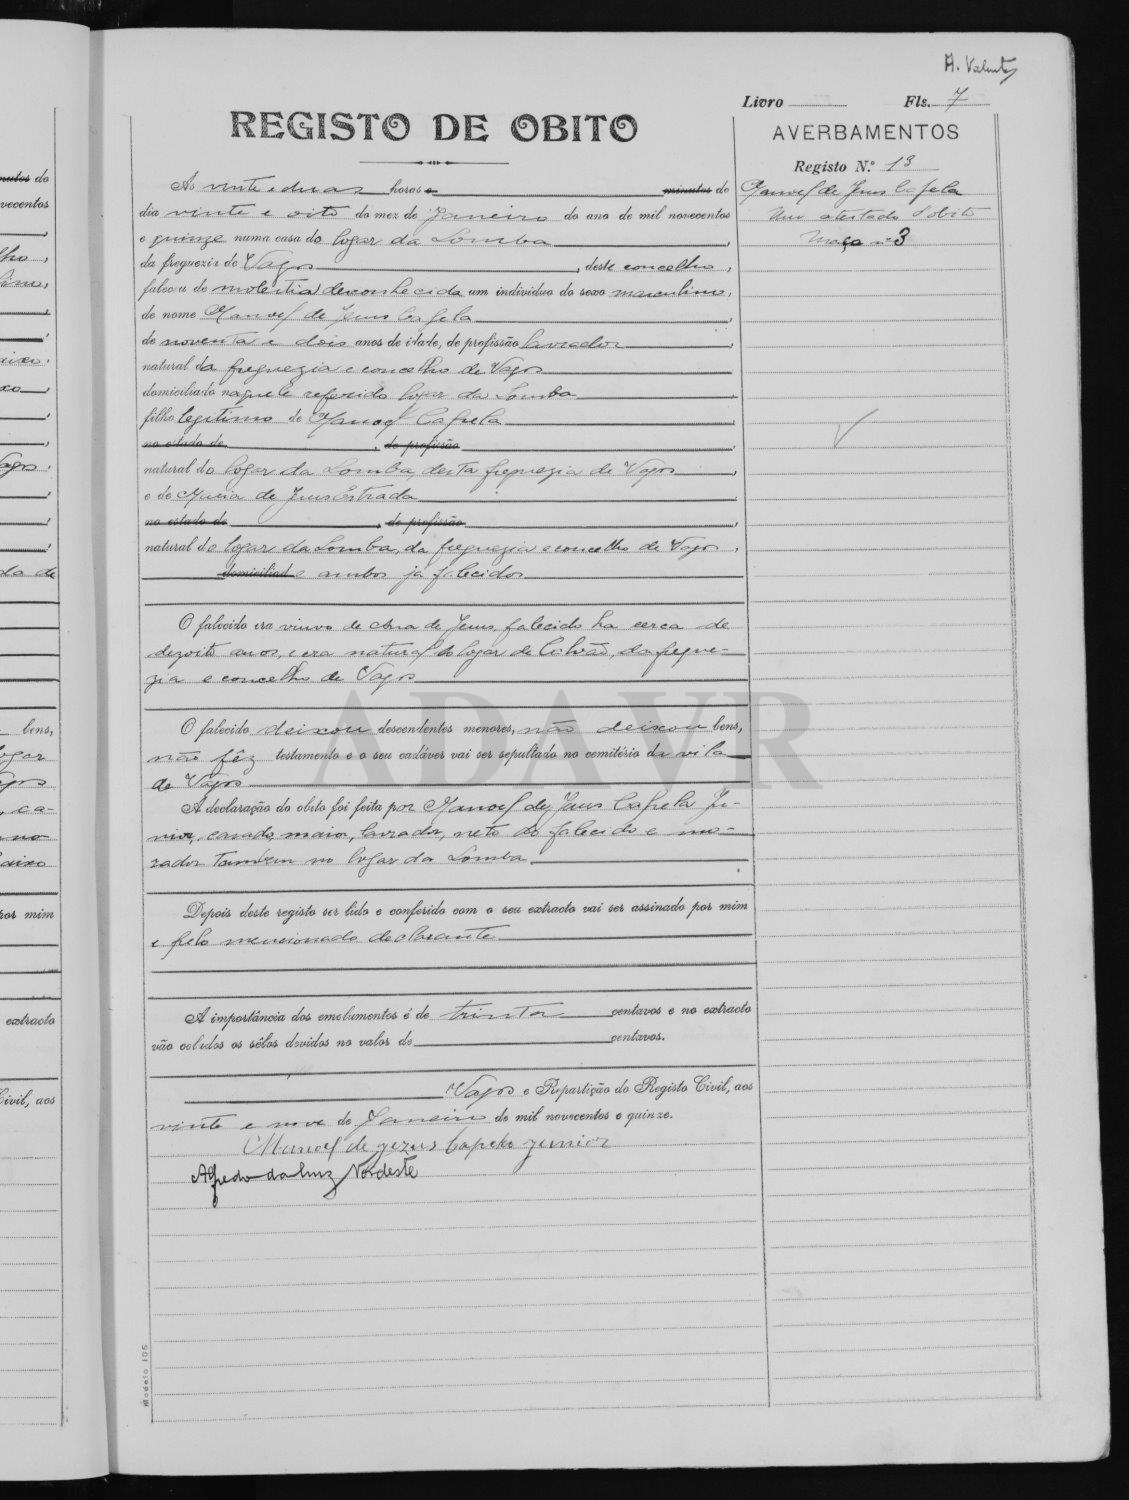 A. Valente
Livro Fls. 7
REGISTO DE OBITO
AVERBAMENTOS
Registo N.º 13
Manoel de Jesus Capela
Um atestado d'obito
Maço nº 3
Ás vinte e duas horas e minutos do
dia vinte e oito do mez de Janeiro do ano de mil novecentos
e quinze numa casa do logar da Lomba,
da freguezia de Vagos, deste concelho,
faleceu de molestia desconhecida um individuo do sexo masculino,
de nome Manoel de Jesus Capela,
de noventa e dois anos de idade, de profissão lavrador,
natural da freguezia e concelho de Vagos
domiciliado naquele referido logar da Lomba,
filho legitimo de Manoel Capela,
no estado de, de profissão,
natural do logar da Lomba, desta freguezia de Vagos,
e de Maria de Jesus Estrada
no estado de, de profissão,
natural do logar da Lomba, da freguezia e concelho de Vagos,
domiciliad e ambos já falecidos
O falecido era viuvo de Ana de Jesus, falecido ha cerca de
dezoito anos, e era natural do logar de Calvão, da fregue-
zia e concelho de Vagos
O falecido deixou descendentes menores, não deixou bens,
não fêz testamento e o seu cadáver vai ser sepultado no cemitério da vila
de Vagos
A declaração do obito foi feita por Manoel de Jesus Capela Ju-
nior, casado, maior, lavrador, neto do falecido e mo-
rador tambem no logar da Lomba.
Depois deste registo ser lido e conferido com o seu extracto vai ser assinado por mim
e pelo mencionado declarante
A importância dos emolumentos é de trinta centavos e no extracto
vão colados os sêlos devidos no valor de centavos.
Vagos e Repartição do Registo Civil, aos
vinte e nove de Janeiro de mil novecentos e quinze.
Manoel de jezus Capela junior
Alfredo da Luz Nordeste
Modelo 105
ADAVR